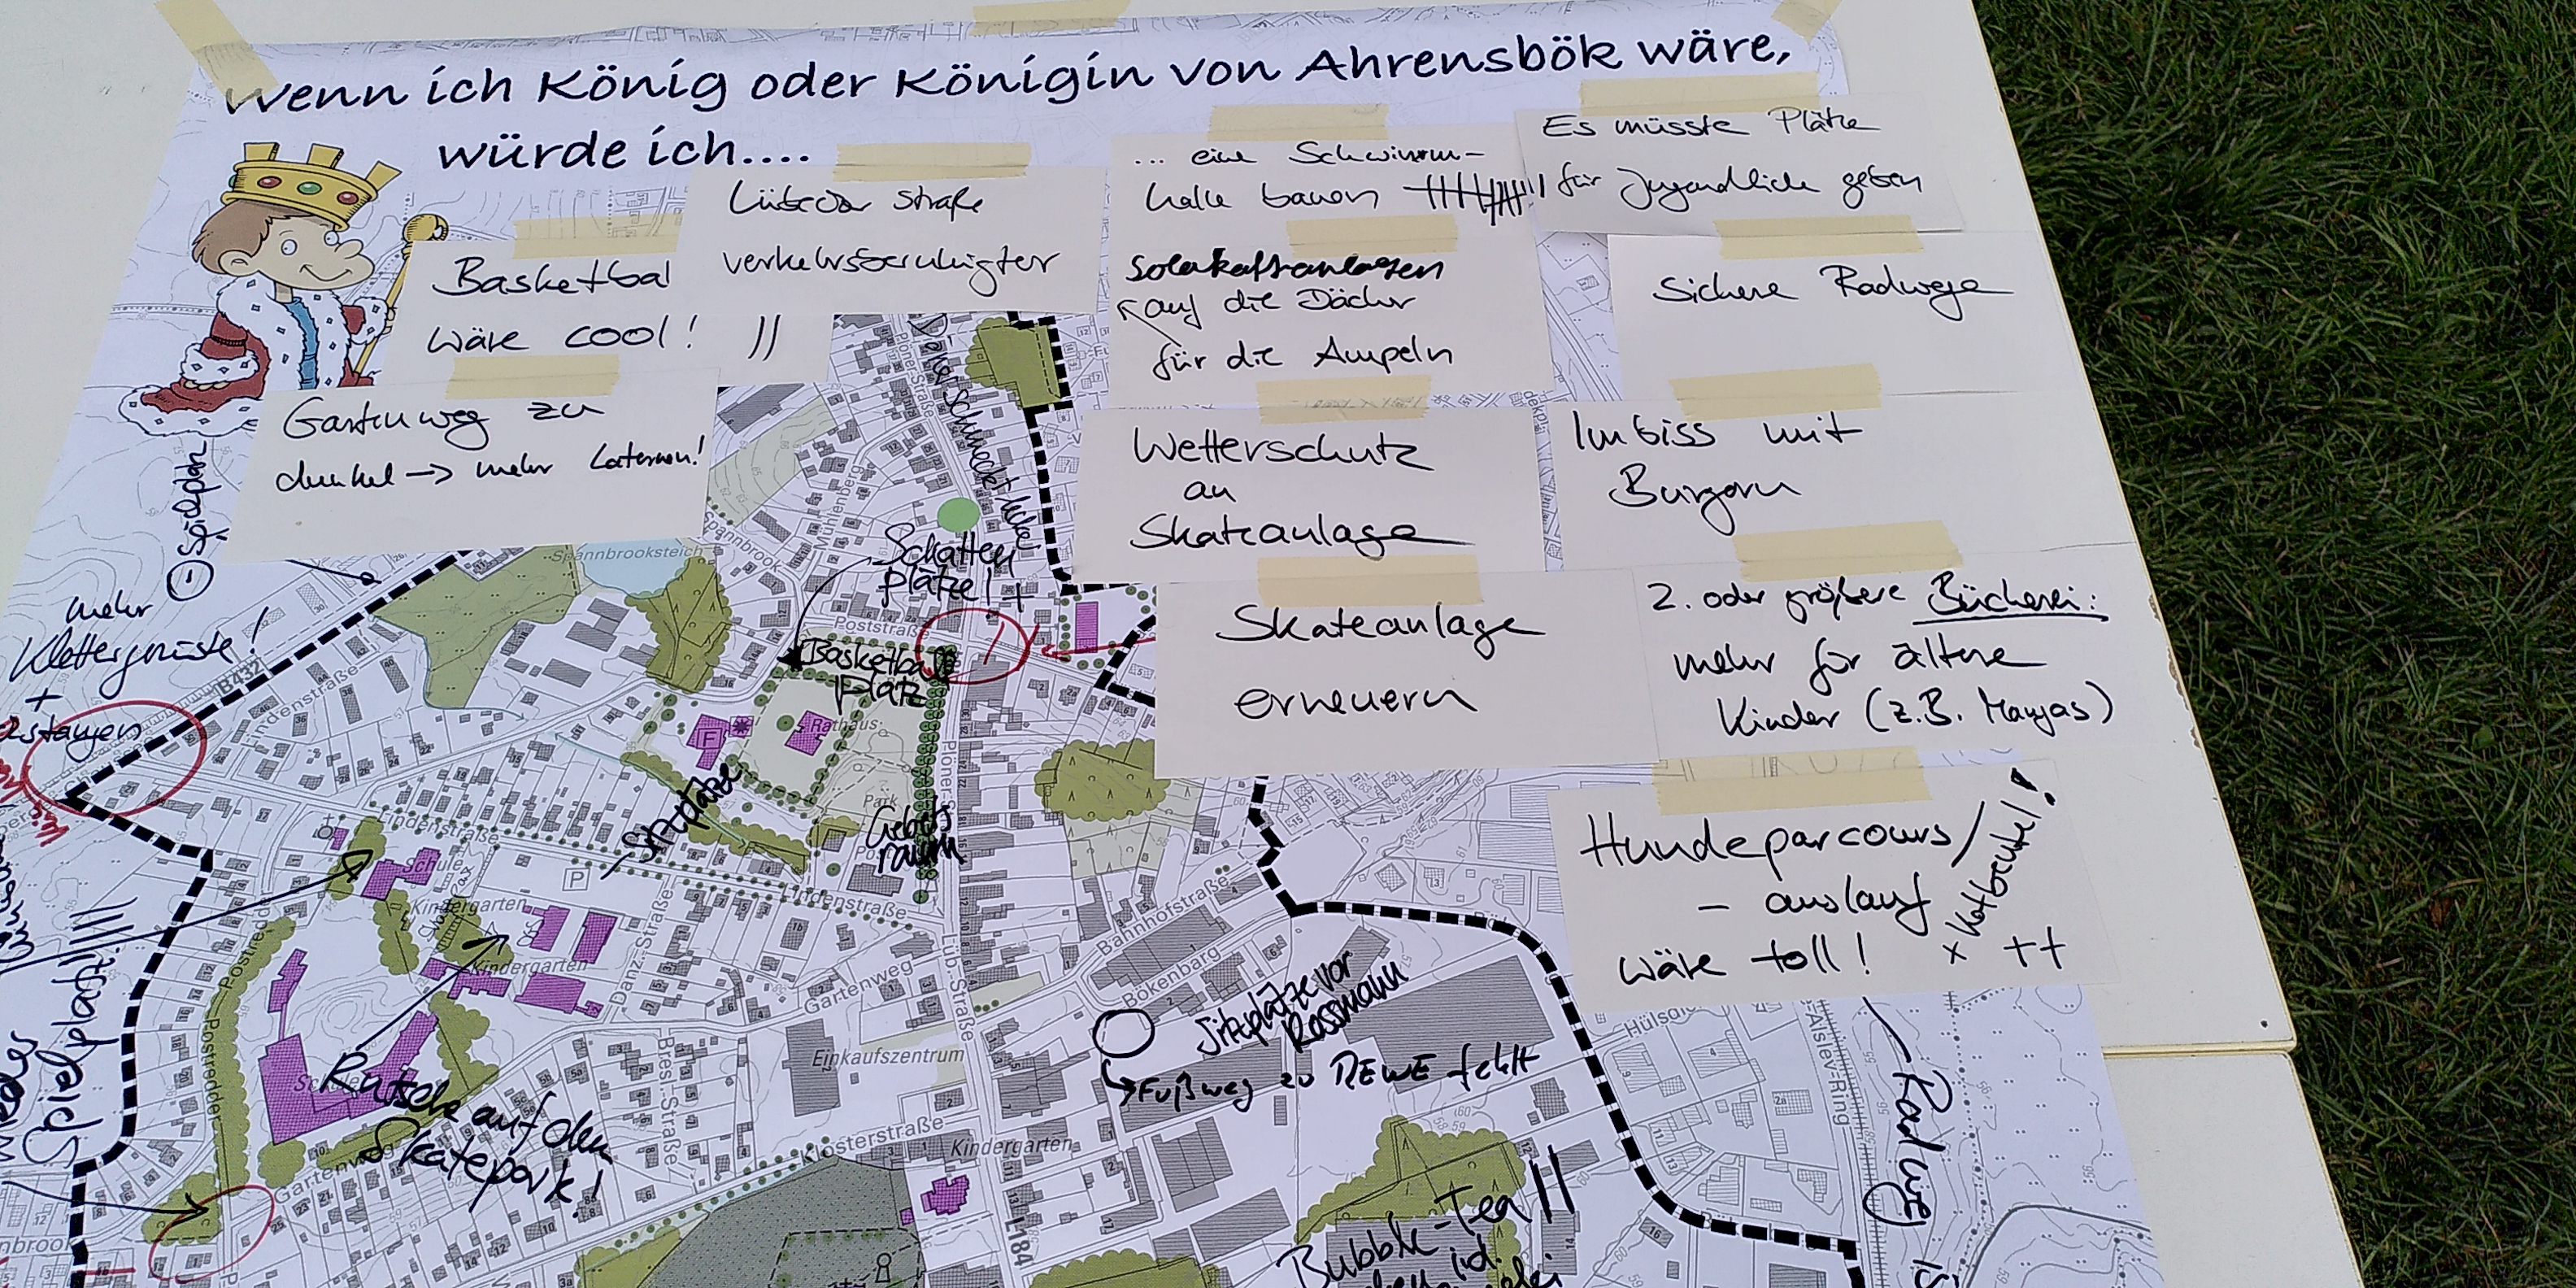 Wenn ich König oder Königin von Ahrensbök wäre,
würde ich....
Lübecker Straße
verkehrsberuhigter
Basketbal
wäre cool! ||
Gartenweg zu
dunkel → mehr Laternen!
... eine Schwimm-
halle bauen
Solarkraftanlagen
auf die Dächer
für die Ampeln
Wetterschutz
an
Skateanlage
Skateanlage
erneuern
Es müsste Plätze
für Jugendliche geben
Sichere Radwege
Imbiss mit
Burgern
2. oder größere Bücherei:
mehr für ältere
Kinder (z.B. Mangas)
Hundeparcours/
- auslauf
wäre toll!
+ Kotbeutel!
++
mehr
Klettergerüste!
+
Schatten
plätze! +
Basketball
Platz
Sitzplätze
Gebets
raum
Spielplatz!
Rutsche auf dem
Skatepark!
Sitzplätze vor
Rossmann
Fußweg zu REWE fehlt
Bubble-Tea ||
Radweg
Spannbrooksteich
Spannbrook
Mühlenberg
Plöner Straße
Poststraße
B432
Lindenstraße
Rathaus
F
Park
Lindenstraße
P
Lindenstraße
Schule
Kindergarten
Kindergarten
Danz.-Straße
Gartenweg
Bahnhofstraße
Bökenbarg
Lüb.-Straße
Postredder
Postredder
Einkaufszentrum
Bres.-Straße
Klosterstraße
Kindergarten
Gartenweg
L184
Aslev-Ring